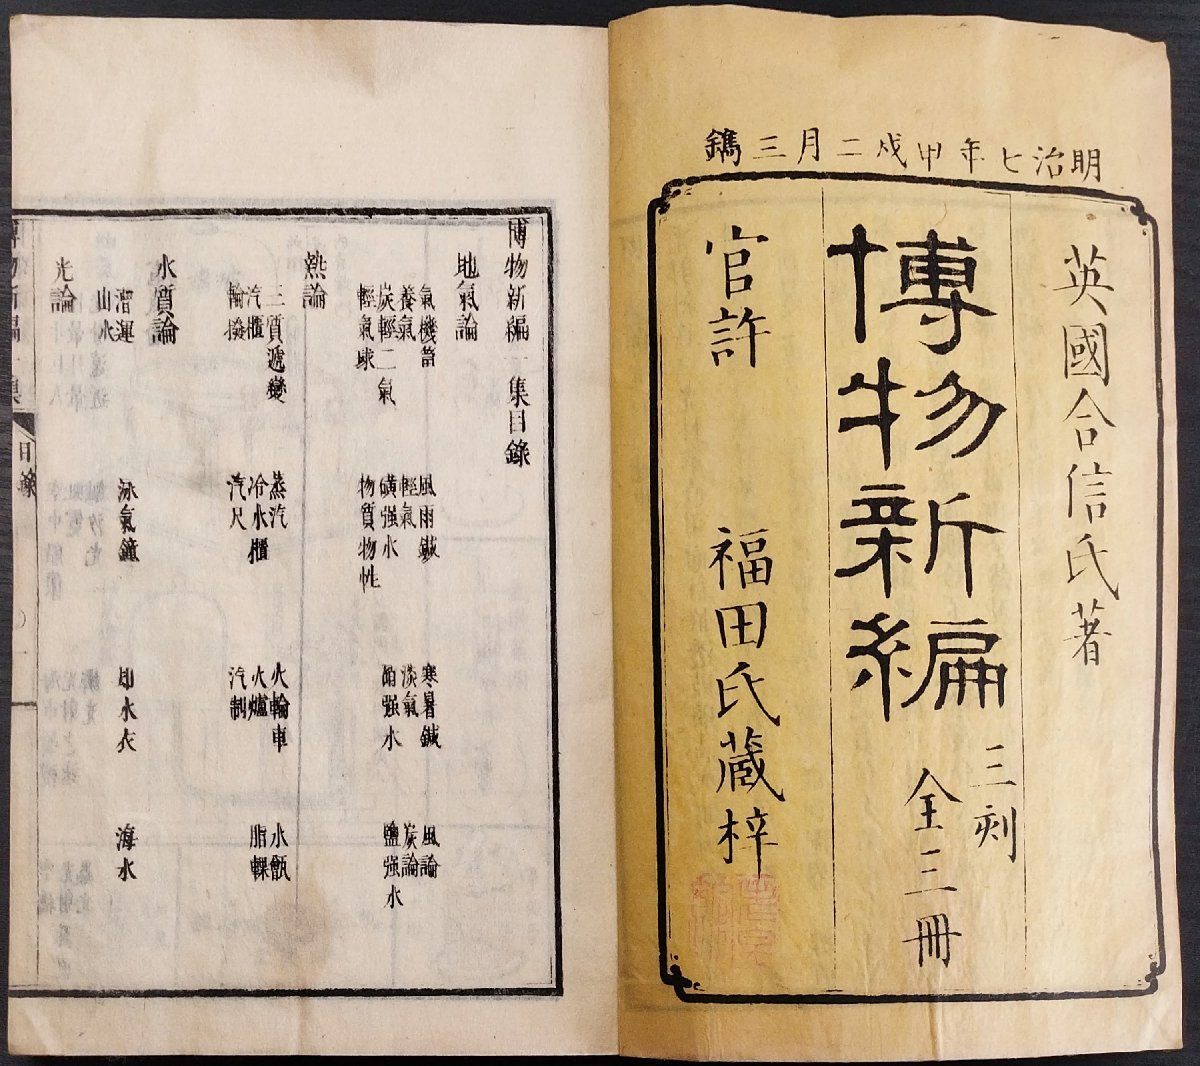 明治七年甲戌二月三鐫
英國合信氏著
博物新編
三刻
全三冊
官許
福田氏蔵梓
博物新編一集目錄
地氣論
氣機筩 風雨鍼 寒暑鍼 風論
養氣 輕氣 淡氣 炭論
炭輕二氣 磺强水 硝强水 鹽强水
輕氣球 物質物性
熱論
三質遞變 蒸汽 火輪車 水甑
汽櫃 冷水櫃 火爐 脂輠
輪撥 汽尺 汽制
水質論
漕運 泳氣鐘 却水衣 海水
山水
光論
博物新編一集 目錄 一